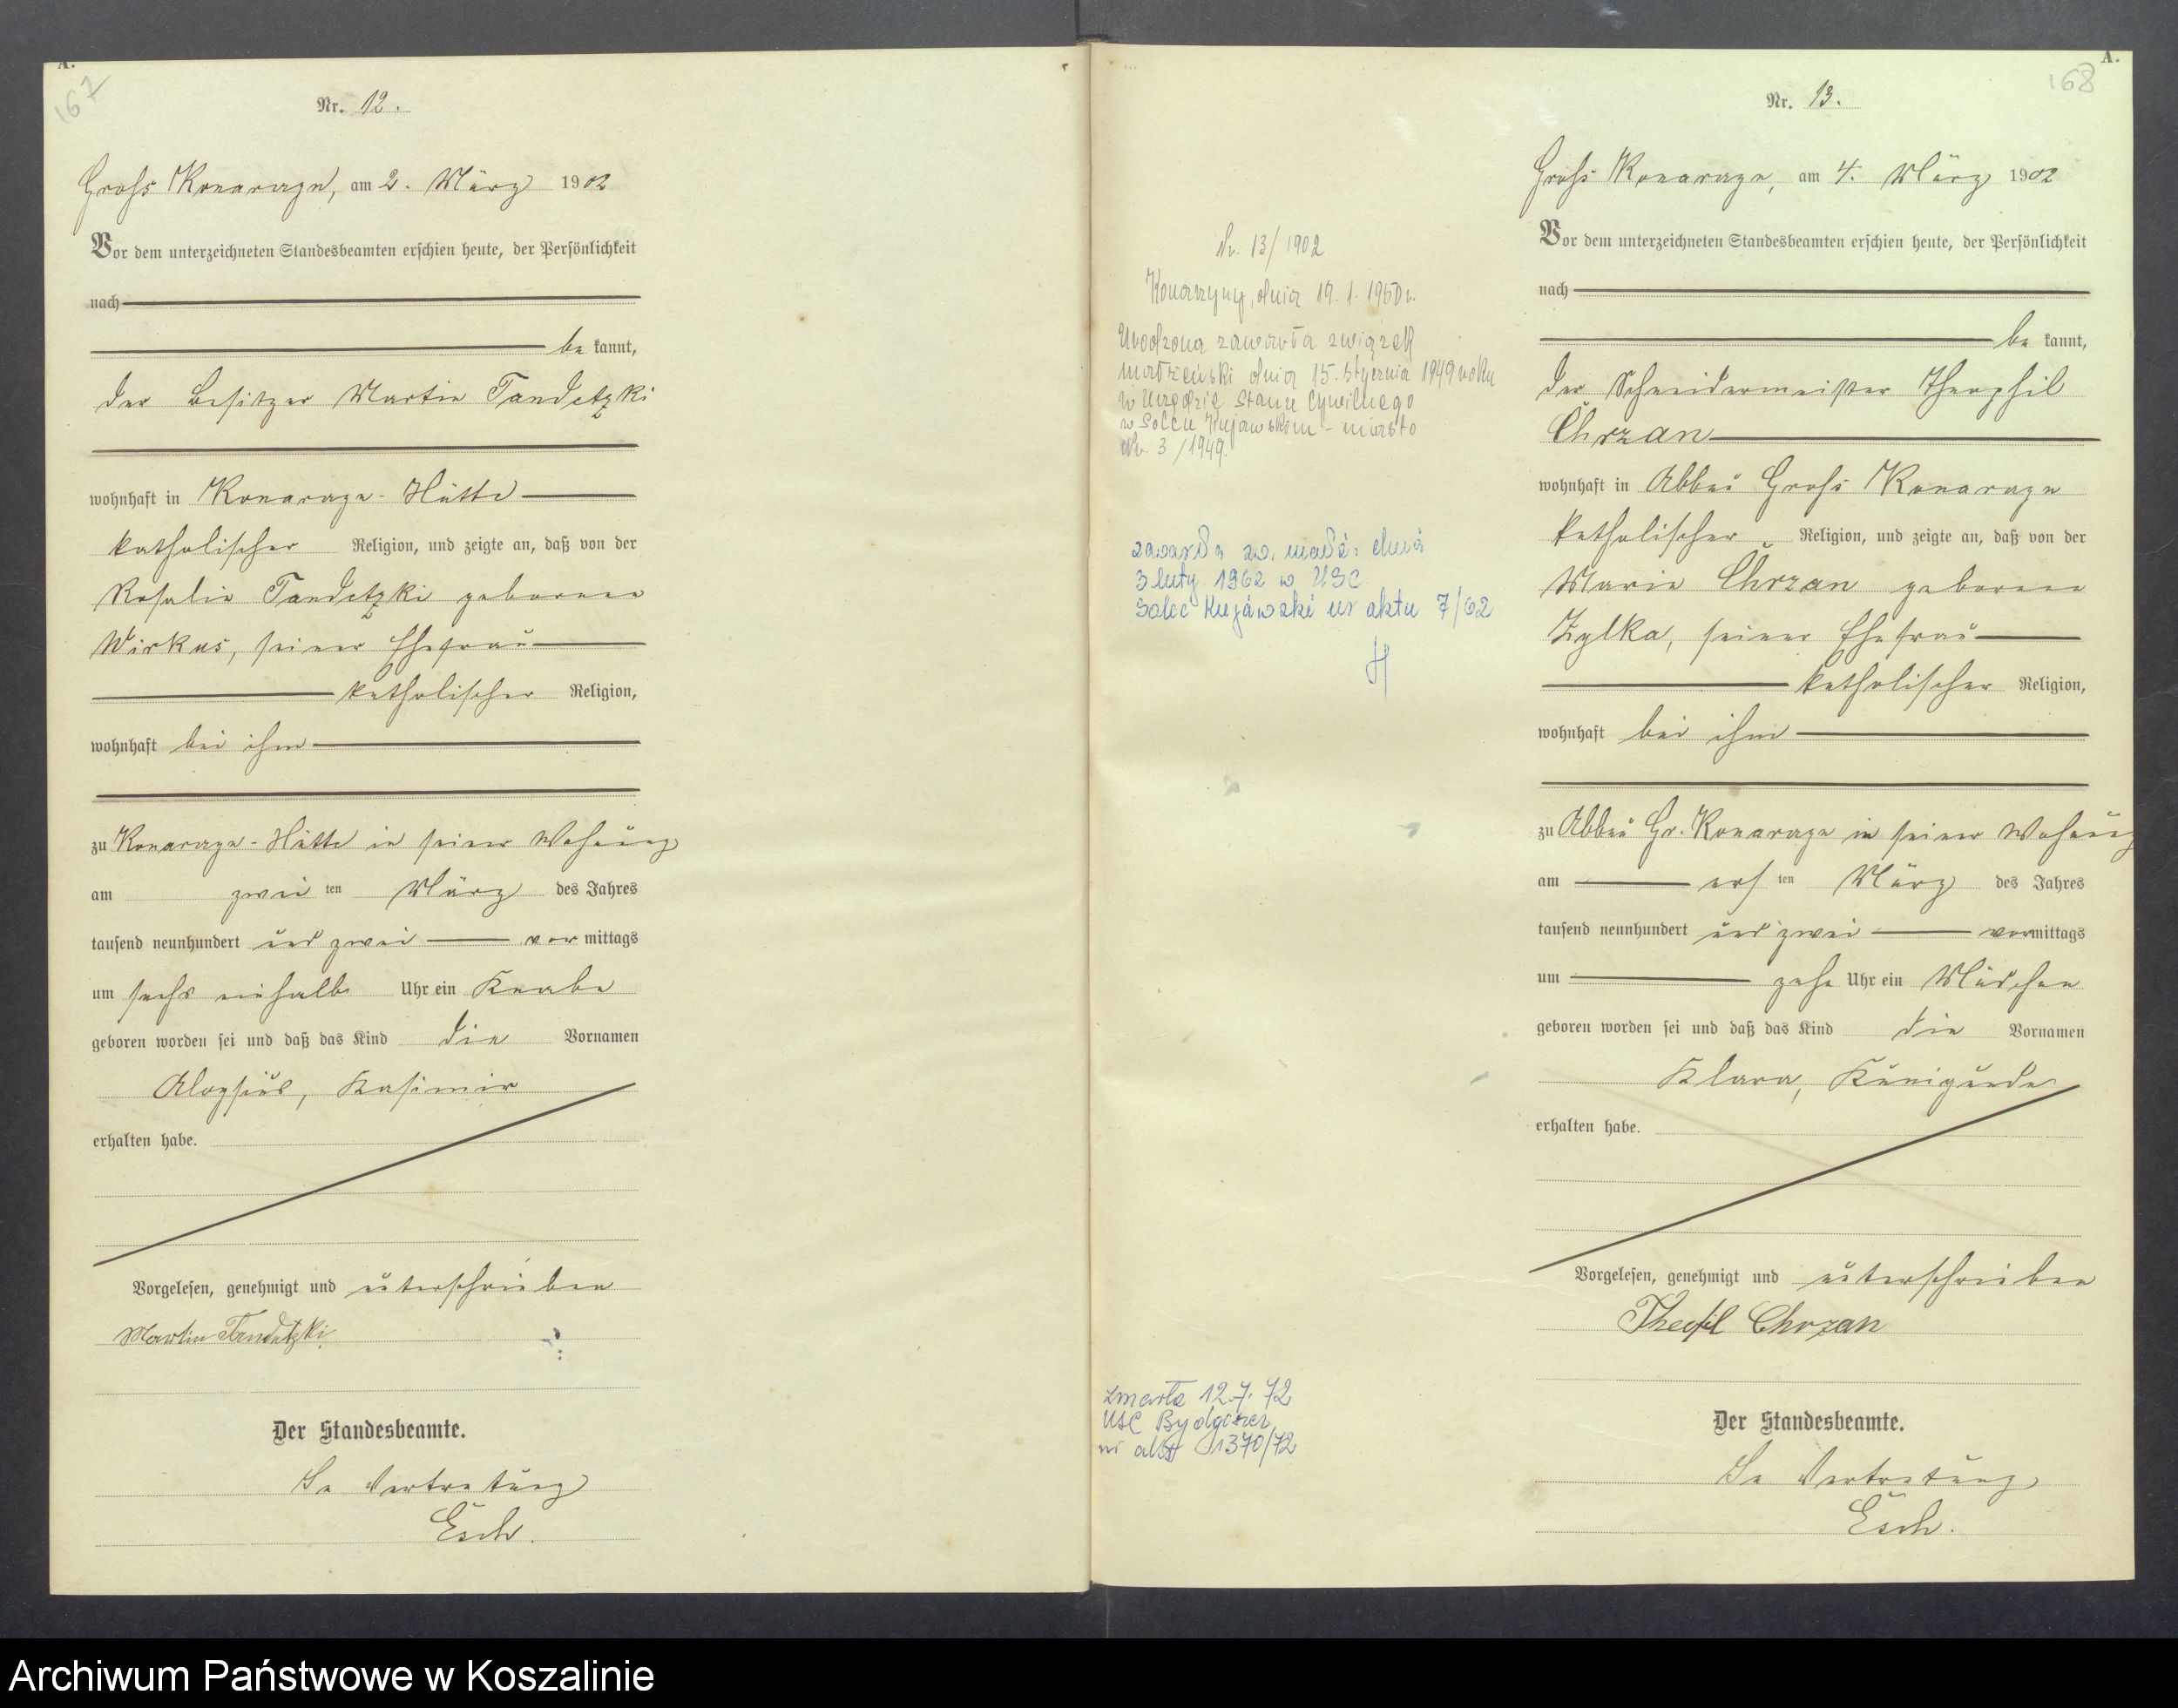 A.
167
Nr. 12.
Groß Konarczyn, am 2. März 1902
Vor dem unterzeichneten Standesbeamten erschien heute, der Persönlichkeit
nach
be kannt,
der Besitzer Martin Tandetzki
wohnhaft in Konarczyn-Hütte
katholischer Religion, und zeigte an, daß von der
Rosalie Tandetzki geborene
Wirkus, seiner Ehefrau
katholischer Religion,
wohnhaft bei ihm
zu Konarczyn-Hütte in seiner Wohnung
am zwei ten März des Jahres
tausend neunhundert und zwei vor mittags
um sechs einhalb Uhr ein Knabe
geboren worden sei und daß das Kind die Vornamen
Aloysius, Kasimir
erhalten habe.
Vorgelesen, genehmigt und unterschrieben
Martin Tandetzki
Der Standesbeamte.
In Vertretung
Esch.
Nr. 13/1902
Konarzyny, dnia 19. 1. 1950 r.
Urodzona zawarła związek
małżeński dnia 15. stycznia 1949 roku
w Urzędzie Stanu Cywilnego
w Solcu Kujawskim - miasto
Nr. 3/1949.
zawarła zw. małż. dnia
3 luty 1962 w USC
Solec Kujawski nr aktu 7/62
zmarła 12.7.72
USC Bydgoszcz
nr aktu 1370/72
A.
168
Nr. 13.
Groß Konarczyn, am 4. März 1902
Vor dem unterzeichneten Standesbeamten erschien heute, der Persönlichkeit
nach
be kannt,
der Schneidermeister Theophil
Chrzan
wohnhaft in Abbau Groß Konarczyn
katholischer Religion, und zeigte an, daß von der
Marie Chrzan geborene
Zylka, seiner Ehefrau
katholischer Religion,
wohnhaft bei ihm
zu Abbau Gr. Konarczyn in seiner Wohnung
am ers ten März des Jahres
tausend neunhundert und zwei vormittags
um zehn Uhr ein Mädchen
geboren worden sei und daß das Kind die Vornamen
Klara, Kunigunde
erhalten habe.
Vorgelesen, genehmigt und unterschrieben
Theofil Chrzan
Der Standesbeamte.
In Vertretung
Esch.
Archiwum Państwowe w Koszalinie